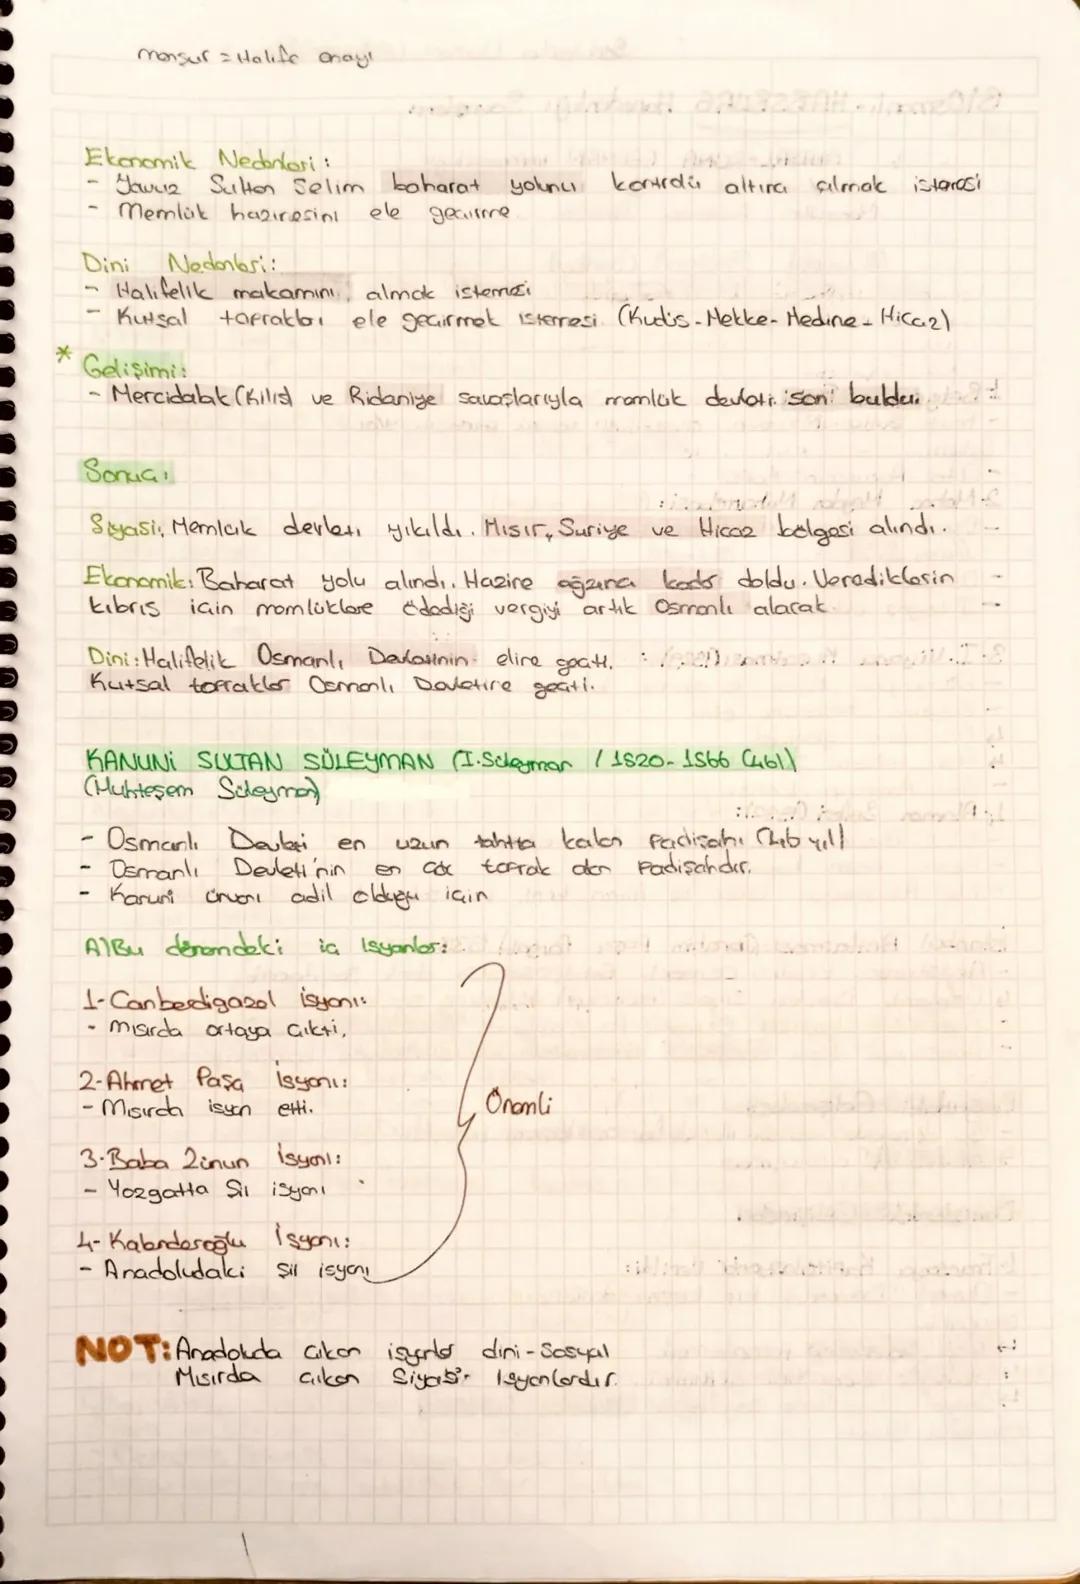 mensur = Halife onayı
Ekonomik Nedenleri:
- Yavuz Sultan Selim baharat yolunu kontrolü altına almak istemesi
- Memlük hazinesini ele geçirme
Dini Nedenleri:
- Halifelik makamını almak istemesi
- Kutsal toprakları ele geçirmek istemesi (Kudüs - Mekke - Medine - Hicaz)
* Gelişimi:
- Mercidabık (Kilis) ve Ridaniye savaşlarıyla memlük devleti son buldu.
Sonuç:
Siyasi: Memlük devleti yıkıldı. Mısır, Suriye ve Hicaz bölgesi alındı.
Ekonomik: Baharat yolu alındı. Hazine ağzına kadar doldu. Venediklerin
kıbrıs için memlüklere ödediği vergiyi artık Osmanlı alacak
Dini: Halifelik Osmanlı Devletinin eline geçti.
Kutsal topraklar Osmanlı Devletine geçti.
KANUNİ SULTAN SÜLEYMAN (I. Süleyman / 1520 - 1566 (46))
(Muhteşem Süleyman)
- Osmanlı Devleti en uzun tahtta kalan Padişahı (46 yıl)
- Osmanlı Devleti'nin en çok toprak alan Padişahdır.
- Kanuni ünvanı adil olduğu için
A) Bu dönemdeki iç İsyanlar:
1- Canberdigazel İsyanı:
- Mısırda ortaya çıktı,
2- Ahmet Paşa İsyanı:
- Mısırda isyan etti.
3- Baba Zünun İsyanı:
- Yozgatta Şii isyanı
4- Kalenderoğlu İsyanı:
- Anadoludaki Şii isyanı
Önemli
NOT: Anadoluda çıkan isyanlar dini - Sosyal
Mısırda çıkan Siyasi İsyanlardır.